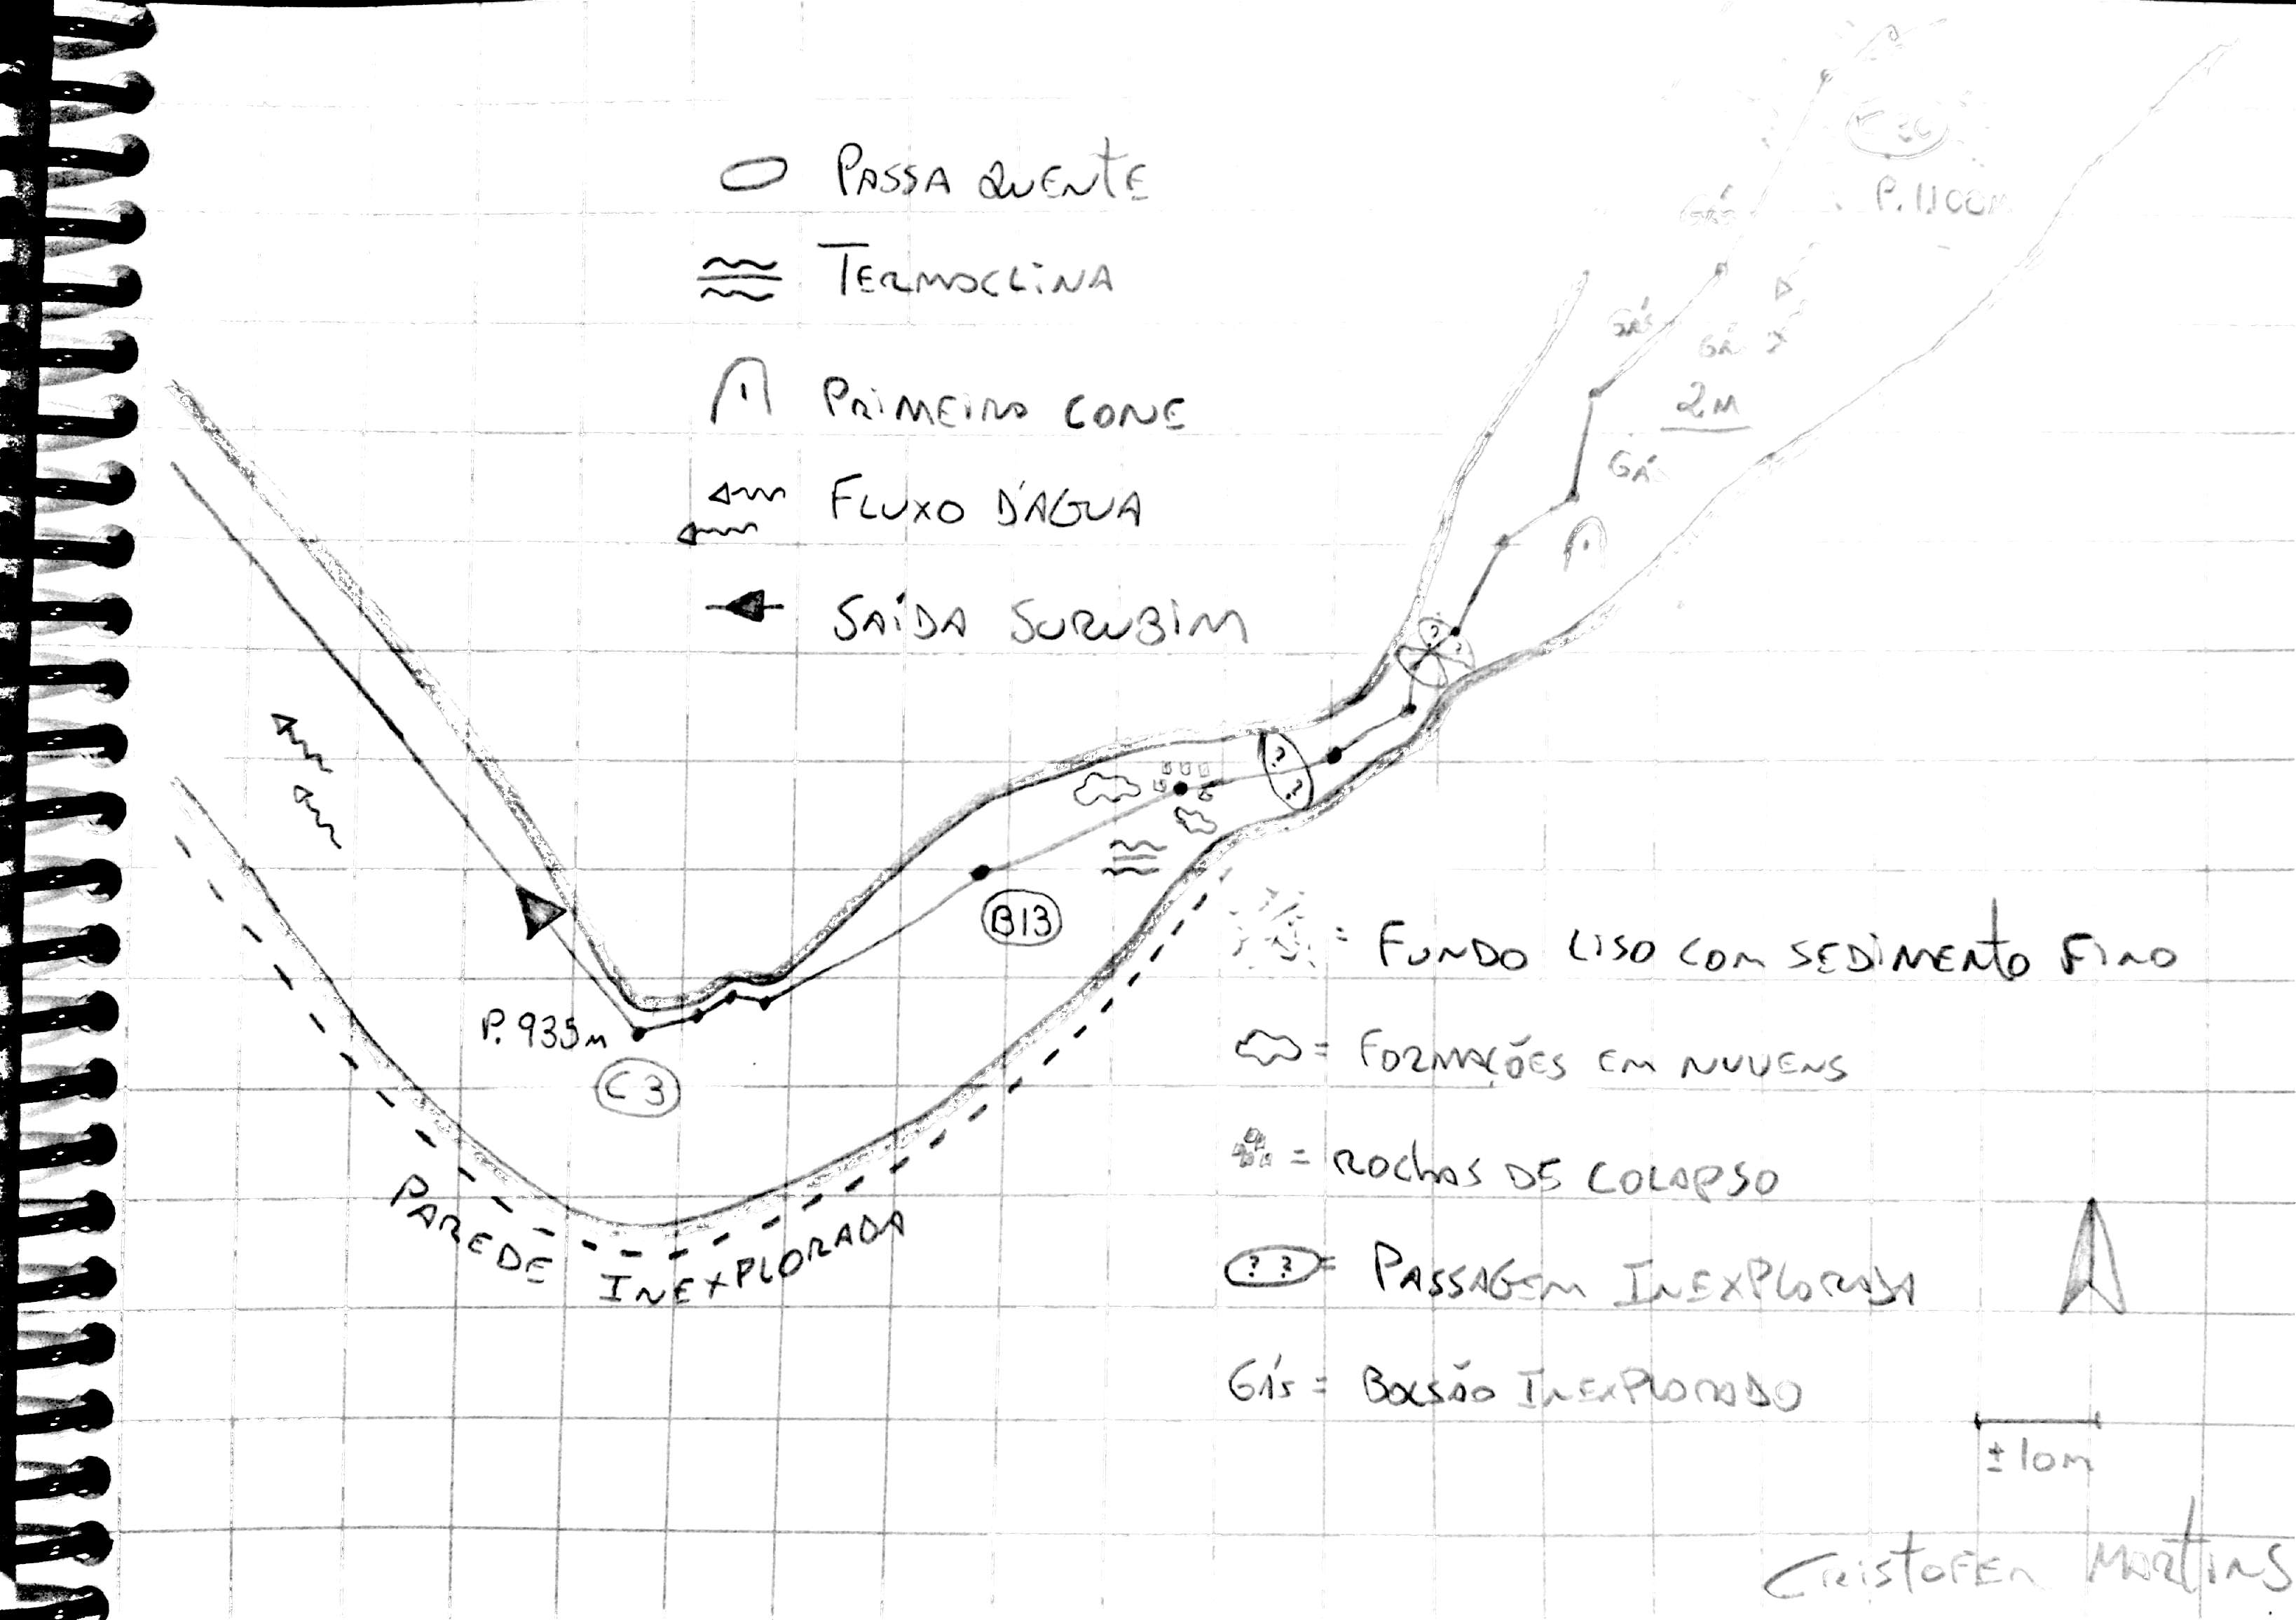 PASSA QUENTE
TERMOCLINA
PRIMEIRO CONE
FLUXO D'ÁGUA
SAÍDA SURUBIM
P. 1100M
GÁS
GÁS
GÁS
2M
GÁS
? ?
? ?
B13
P. 935M
C3
PAREDE INEXPLORADA
= FUNDO LISO COM SEDIMENTO FINO
= FORMAÇÕES EM NUVENS
= ROCHAS DE COLAPSO
? ? = PASSAGEM INEXPLORADA
GÁS = BOLSÃO INEXPLORADO
± 10M
CRISTOFER MARTINS